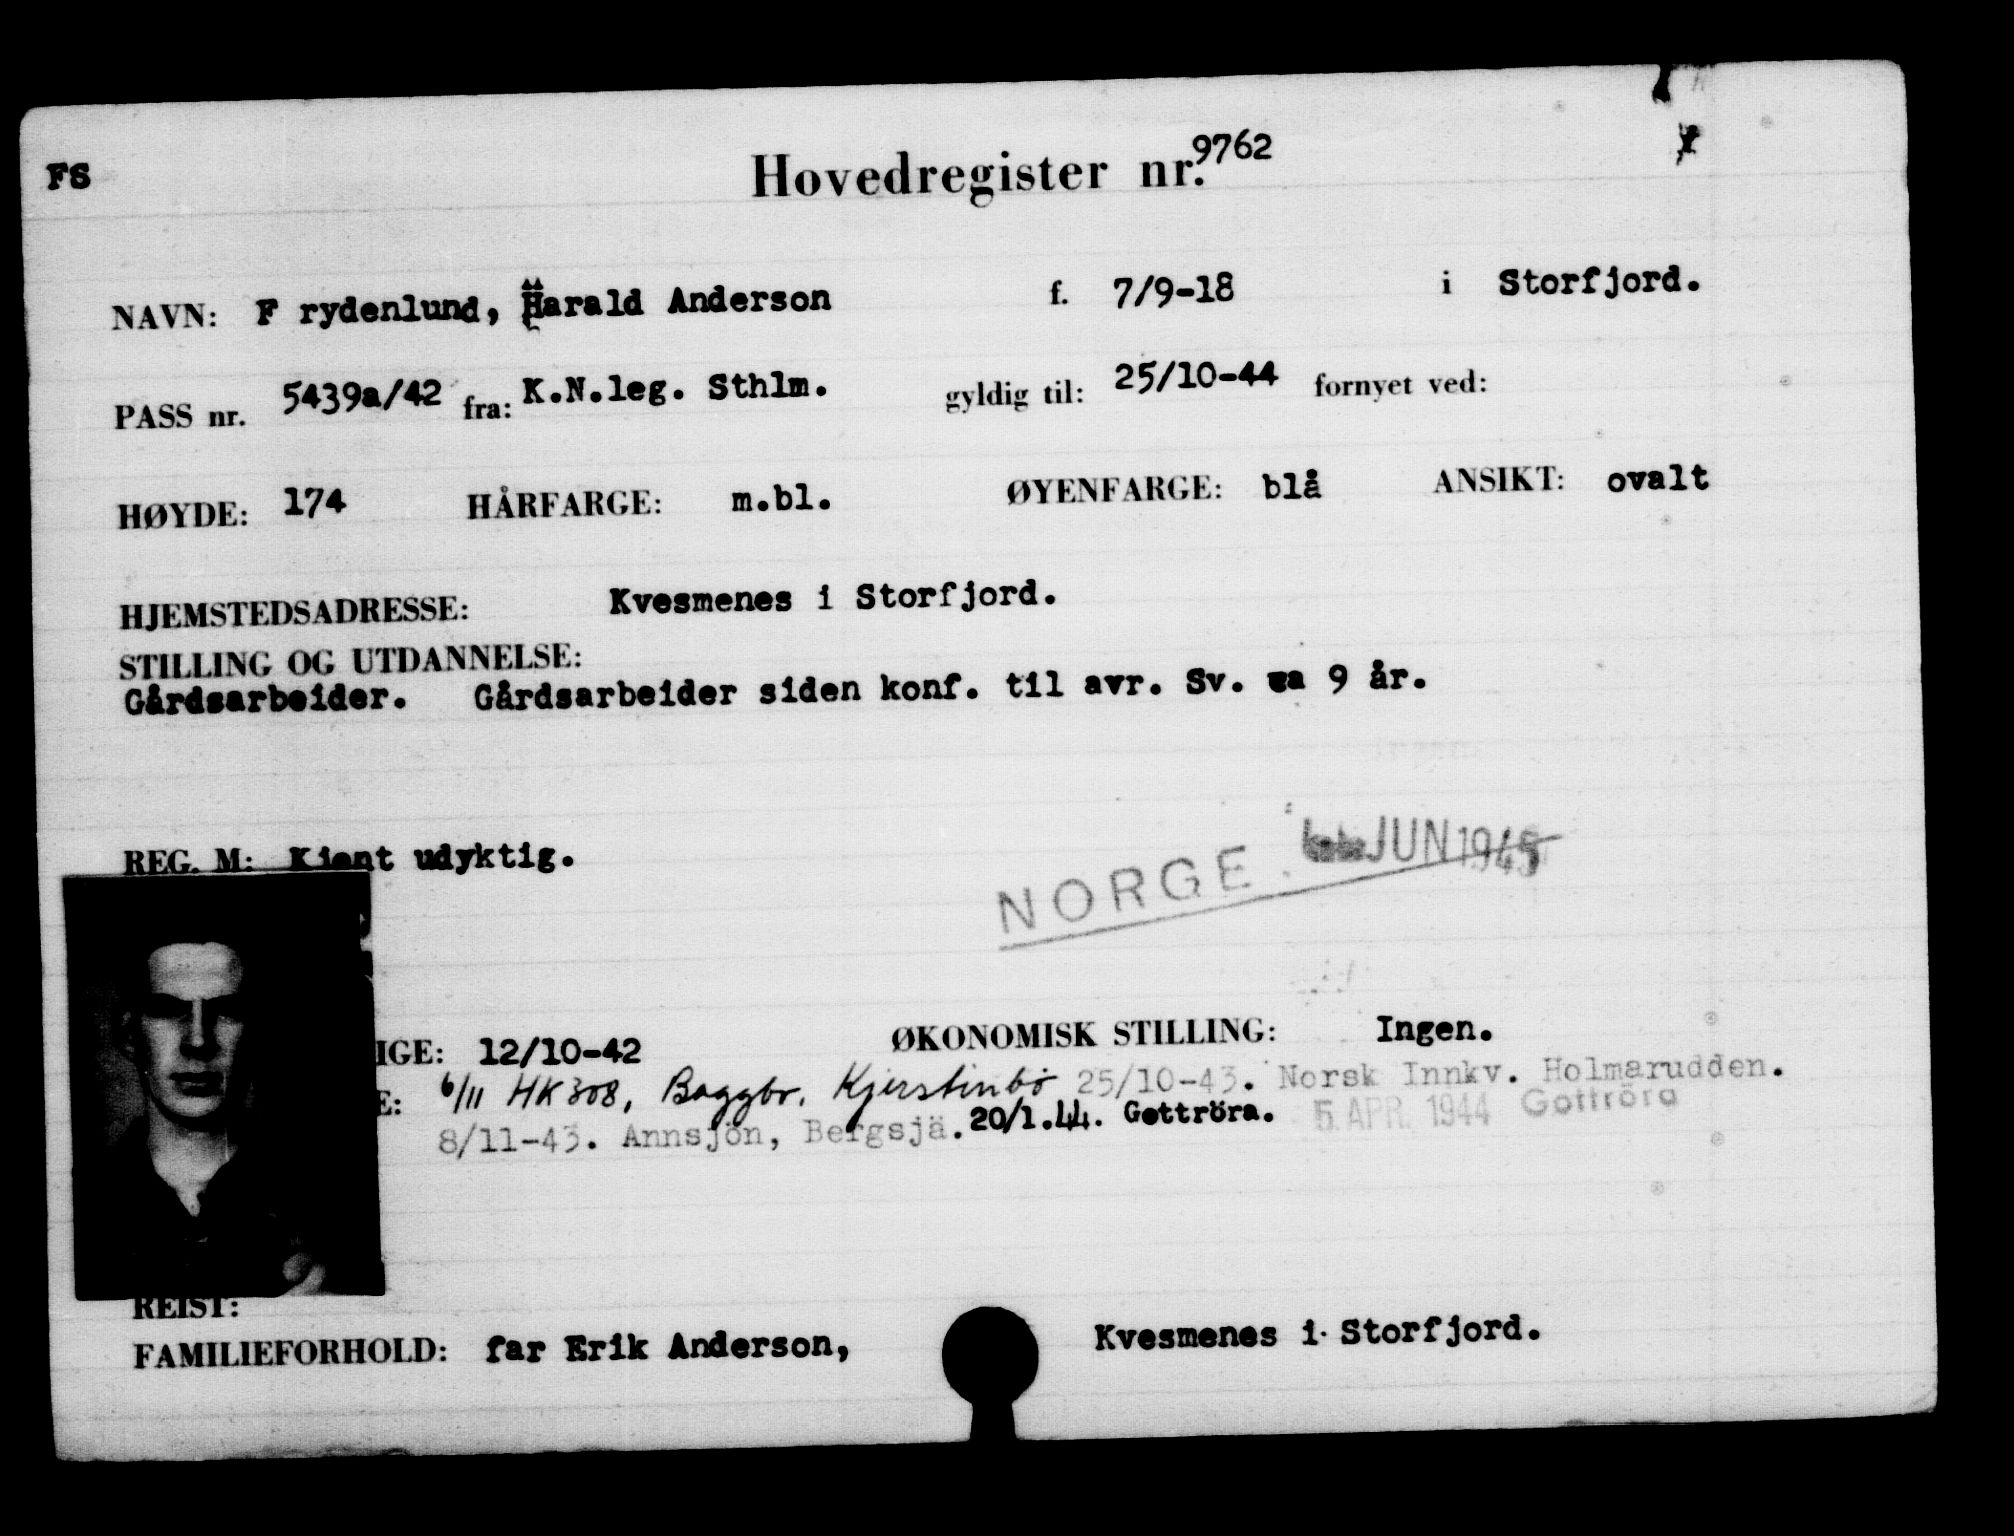 FS
Hovedregister nr. 9762
NAVN: F rydenlund, Harald Anderson f. 7/9-18 i Storfjord.
PASS nr. 5439a/42 fra: K.N.leg. Sthlm. gyldig til: 25/10-44 fornyet ved:
HØYDE: 174 HÅRFARGE: m.bl. ØYENFARGE: blå ANSIKT: ovalt
HJEMSTEDSADRESSE: Kvesmenes i Storfjord.
STILLING OG UTDANNELSE:
Gårdsarbeider. Gårdsarbeider siden konf. til avr. Sv. 9 år.
NORGE JUN 1945
REG. M: Kjent udyktig.
IGE: 12/10-42 ØKONOMISK STILLING: Ingen.
E: 6/11 HK 308, Baggbr. Kjerstinbo 25/10-43. Norsk Innkv. Holmarudden.
8/11-43. Annsjön, Bergsjä. 20/1.44. Gottröra. 5. APR. 1944 Gottröra
REIST:
FAMILIEFORHOLD: far Erik Anderson, Kvesmenes i Storfjord.